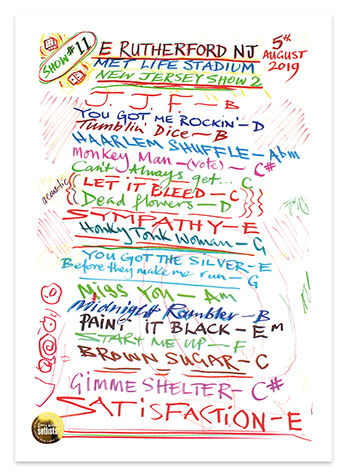 SHOW #11
E RUTHERFORD NJ
5th AUGUST 2019
MET LIFE STADIUM
NEW JERSEY SHOW 2
J. J. F. - B
YOU GOT ME ROCKIN' - D
Tumblin' Dice - B
HAARLEM SHUFFLE - Abm
Monkey Man - (vote) - C#
Can't Always get... C
acoustic
LET IT BLEED - C
Dead flowers - D
SYMPATHY - E
Honky Tonk Woman - G
YOU GOT THE SILVER - E
Before they make me run - G
Miss You - Am
Midnight Rambler - B
PAINT IT BLACK - Em
START ME UP - F
BROWN SUGAR - C
GIMME SHELTER - C#
SATISFACTION - E
setlists